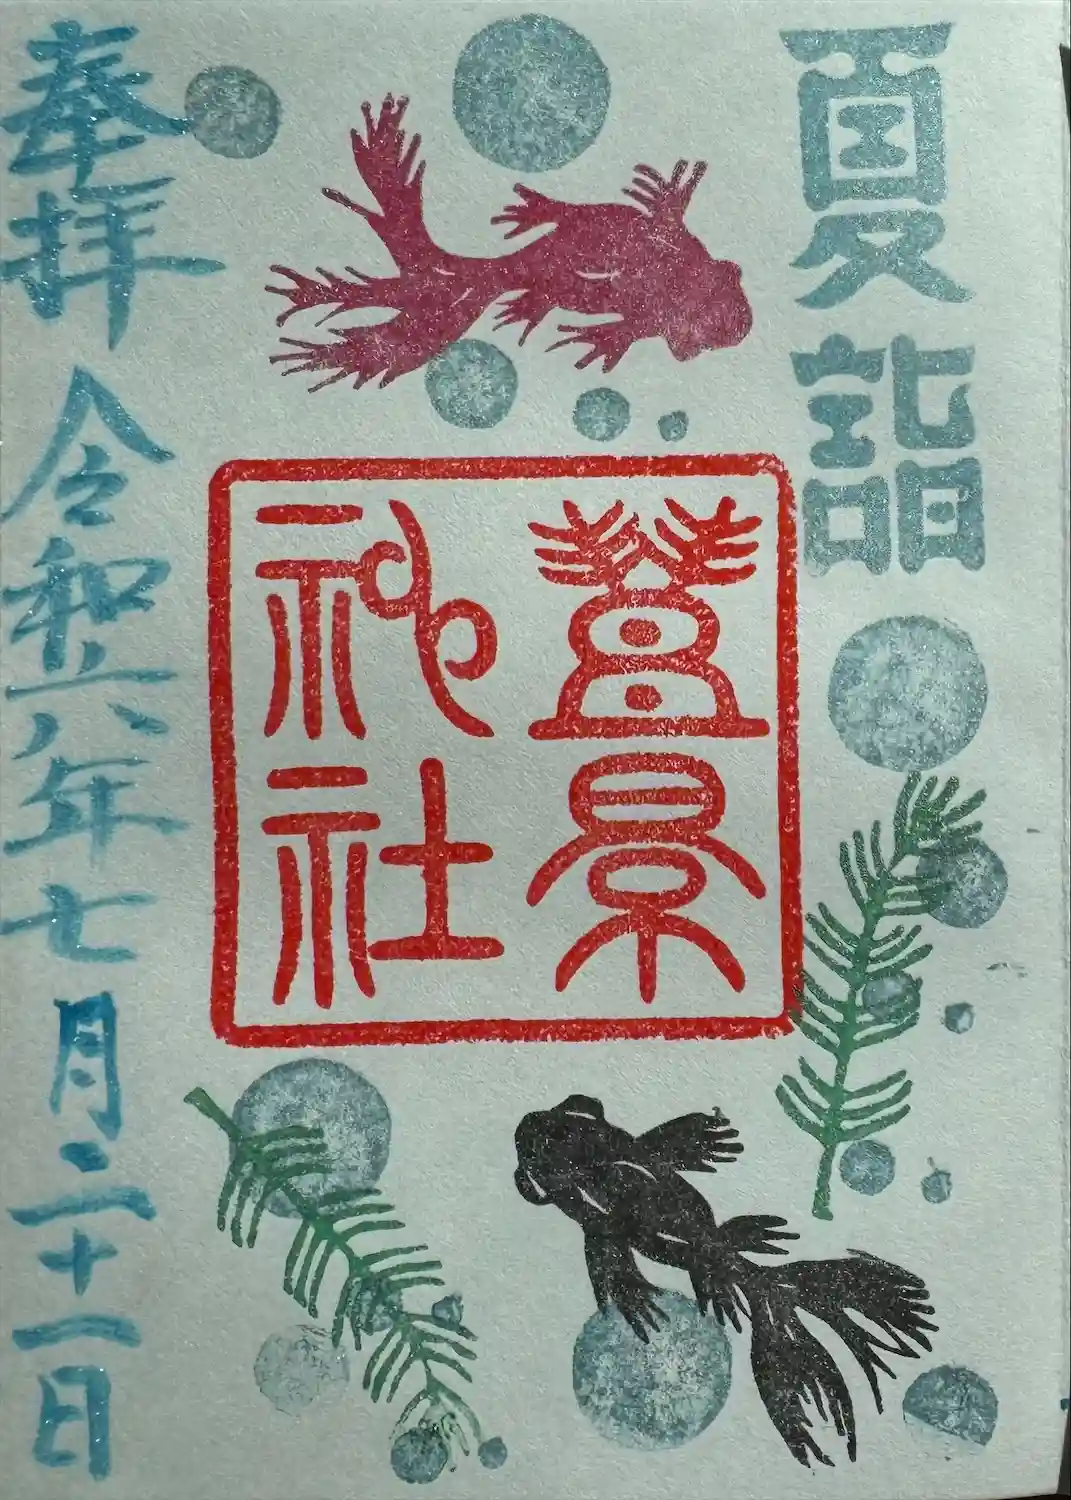 夏詣
豊景
神社
奉拝 令和六年七月二十一日